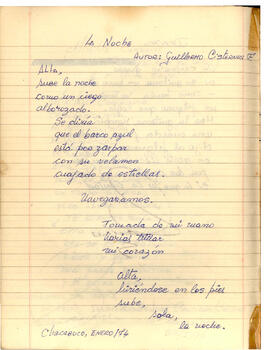 La Noche
Autor: Guillermo Cisternas F
Alta,
sube la noche
como un ciego
alborozado.
Se diría
que el barco azul
está por zarpar
con su velamen
cuajado de estrellas.
Navegaríamos.
Tomada de mi mano
harías titilar
mi corazón
Alta,
hiriéndose en los pies
sube,
sola,
la noche.
Chacabuco, Enero/74